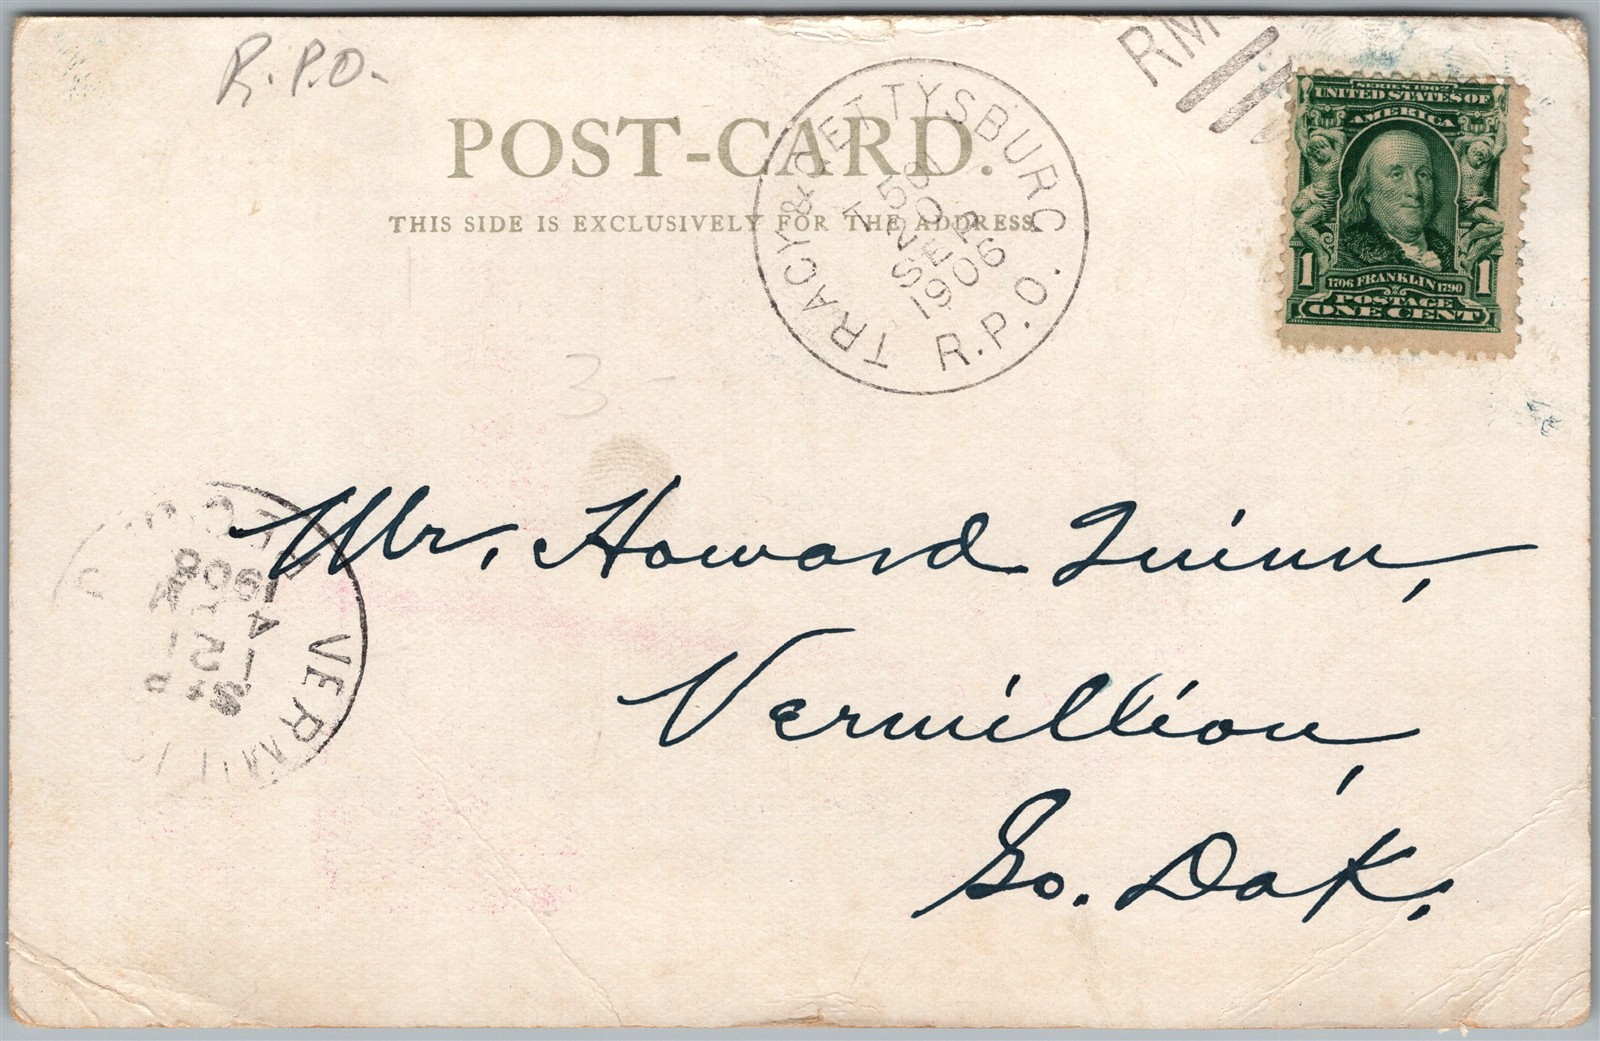 R.P.O.
POST-CARD.
THIS SIDE IS EXCLUSIVELY FOR THE ADDRESS.
TRACY & GETTYSBURG
R.P.O.
SEP
1906
RM
SERIES 1902
UNITED STATES OF
AMERICA
1 1706 FRANKLIN 1790 1
POSTAGE
ONE CENT
3-
Mr. Howard Quinn,
Vermillion,
So. Dak.
VERMILLION
1906